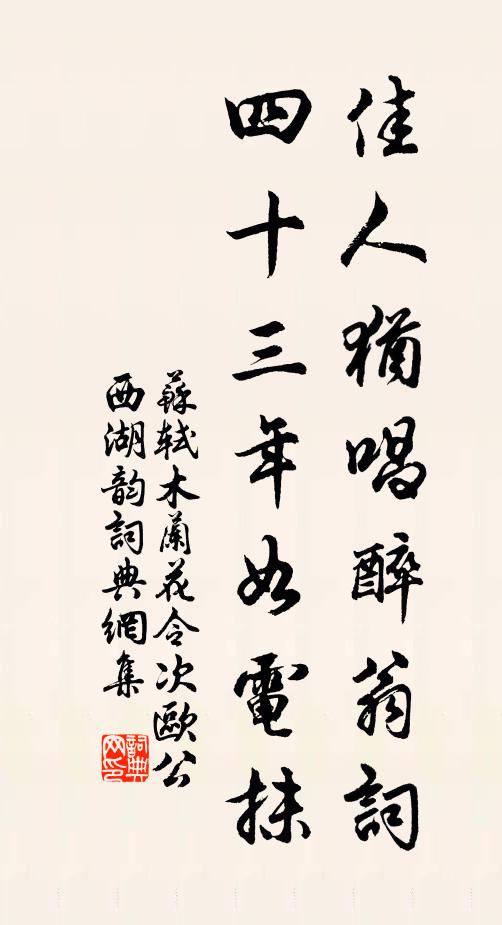 佳人猶唱醉翁詞
四十三年如電抹
蘇軾木蘭花令次歐公
西湖韵詞典網集
詞典網印